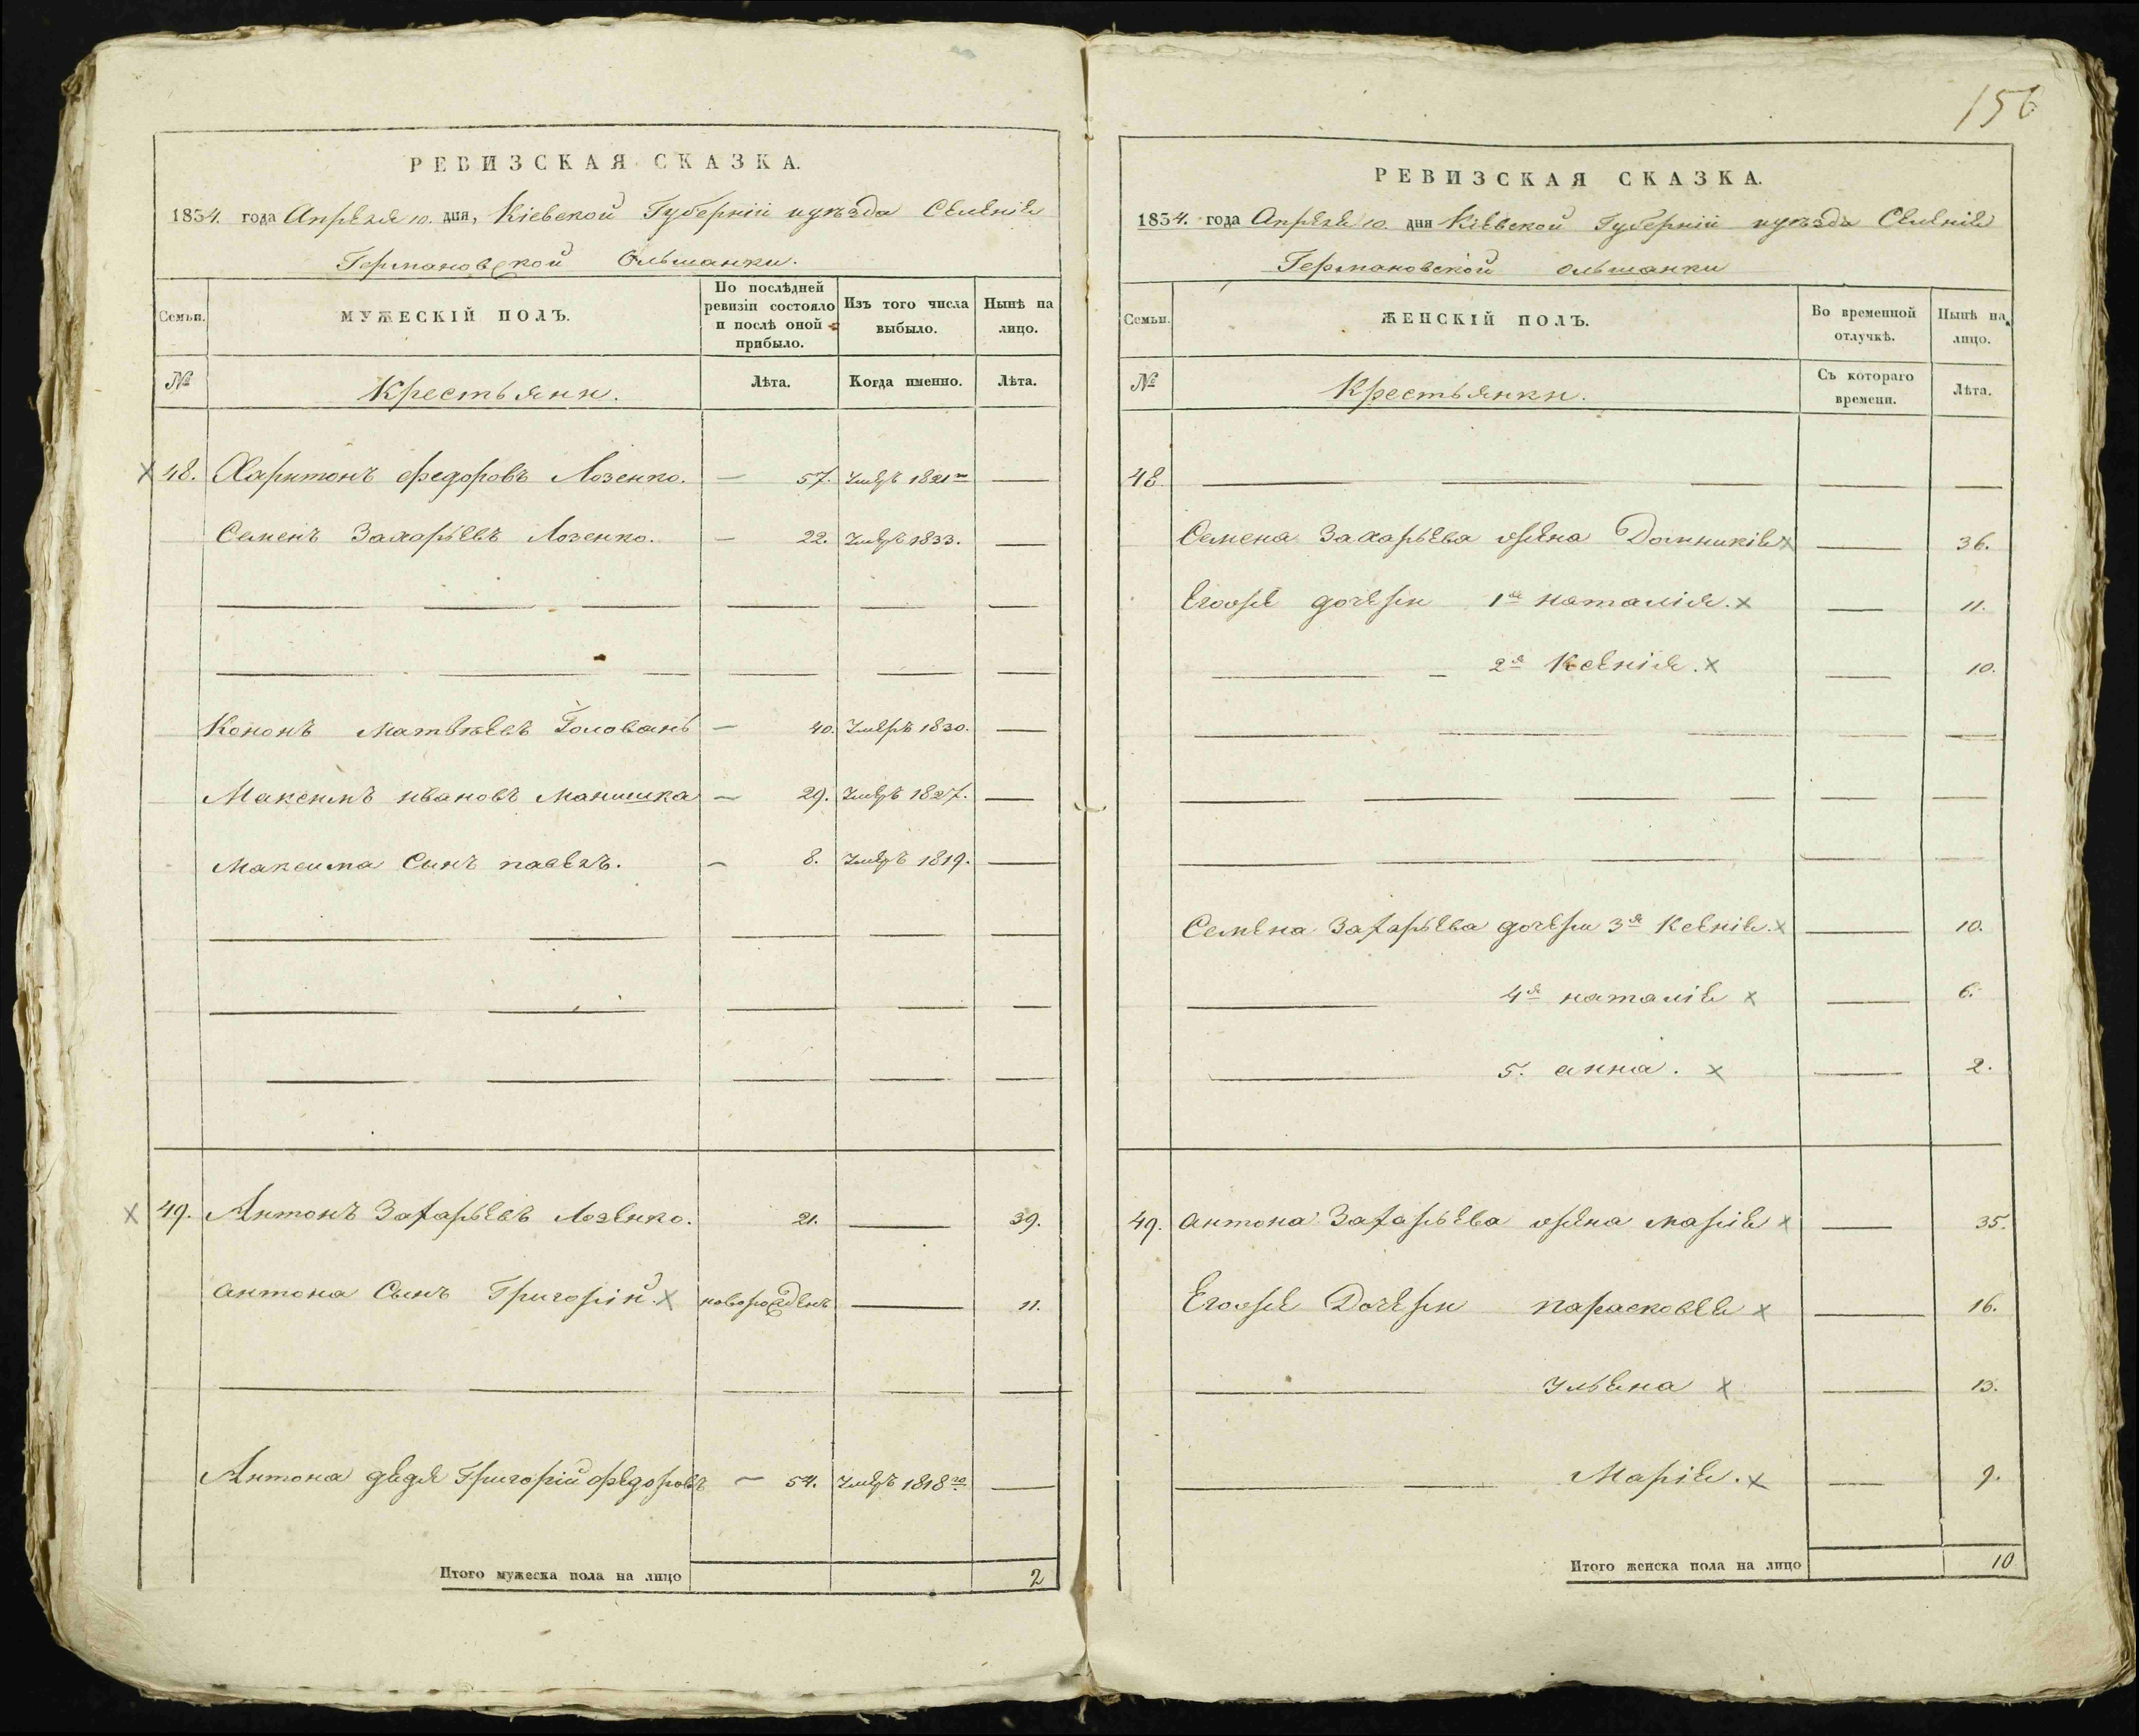 РЕВИЗСКАЯ СКАЗКА.
1834. года Апреля 10. дня, Кіевской Губерніи и уѣзда Селенія
Германовской Ольшанки.
Семьи. МУЖЕСКІЙ ПОЛЪ. По послѣдней ревизіи состояло и послѣ оной прибыло. Изъ того числа выбыло. Нынѣ на лицо.
№ Крестьяни. Лѣта. Когда именно. Лѣта.
48. Харитонъ Федоровъ Лозенко. — 57. Умеръ 1821го —
Семенъ Захарьевъ Лозенко. — 22. Умеръ 1833. —
Кононъ Матвѣевъ Головань — 40. Умеръ 1830. —
Максимъ Ивановъ Манишка — 29. Умеръ 1827. —
Максима Сынъ павелъ. — 8. Умеръ 1819. —
49. Антонъ Захарьевъ Лозенко. 21. — 39.
Антона Сынъ Григорій. х новорожденъ — 11.
Антона дядя Григорій Федоровъ — 54. Умеръ 1818го —
Итого мужеска пола на лицо 2
156
РЕВИЗСКАЯ СКАЗКА.
1834. года Апреля 10. дня Кіевской Губерніи и уѣзда Селенія
Германовской Ольшанки
Семьи. ЖЕНСКІЙ ПОЛЪ. Во временной отлучкѣ. Нынѣ на лицо.
№ Крестьянки. Съ котораго времени. Лѣта.
48.
Семена Захарьева жена Домникія х — 36.
Егоже дочери 1я наталія. х — 11.
2я Ксенія. х — 10.
Семена Захарьева дочери 3я Ксенія. х — 10.
4я наталія х — 6.
5. анна. х — 2.
49. антона Захарьева жена марія х — 35.
Егоже Дочери парасковея х — 16.
Ульяна х — 13.
Марія. х — 9.
Итого женска пола на лицо 10